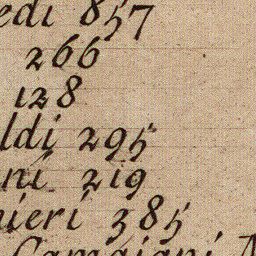 edi 857
266
128
ldi 295
ni 219
nieri 385
Camaiani